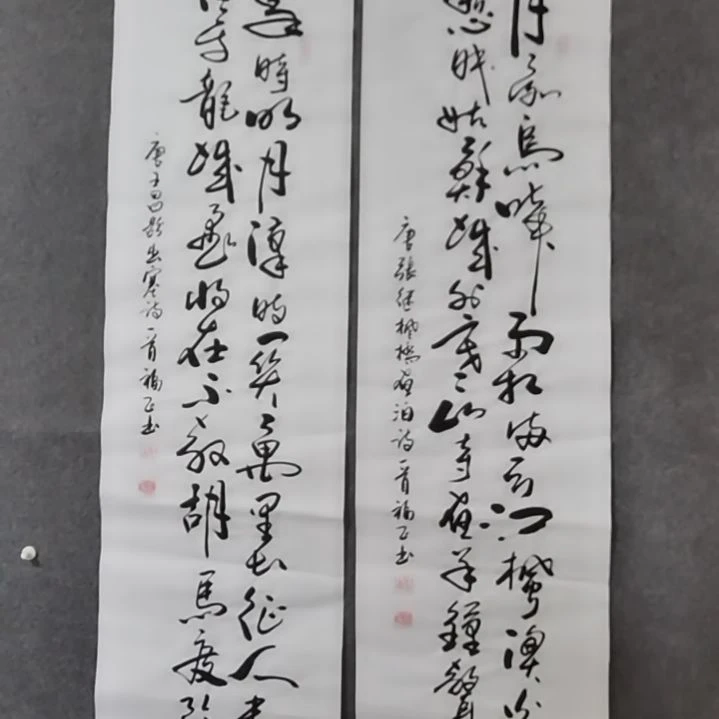 月落烏啼霜滿天江楓漁火
愁眠姑蘇城外寒山寺夜半鐘聲
唐張继楓橋夜泊詩一首福正书
秦時明月漢時關萬里長征人未
但使龍城飛將在不教胡馬度陰
唐王昌齡出塞詩一首福正书